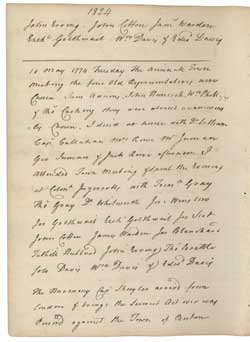 1824
John Erving, John Cotton Jam.s Warden
Ezek.l Goldthwait, Wm Davis & Edw.d Davis
10 May 1774 Tuesday The Annual Town
Meeting the four Old Representatives were
Chosen Sam Adams, John Hancock, Wm Phillips
& Tho Cushing they were almost unanimous
ly Chosen. I dined at home with Dr Latham
Cap. Callahan Mrs Rowe Mr Inman
Geo Inman & Jack Rowe afternoon I
Attended Town Meeting & spent the Evening
at Colonel Ingersolls, with Treas.r Gray
Tho Gray Dr Whitworth Jos Winslow
Jos Goldthwait Ezek Goldthwait Jos Scott
John Cotton James Warden Jos Blanchard
John Erving Tho Brattle
Solo Davis Wm Davis & Edw.d Davis
The Harmony Cap Shayler arrived from
London & brings the Severest Act ever was
Penned against the Town of Boston